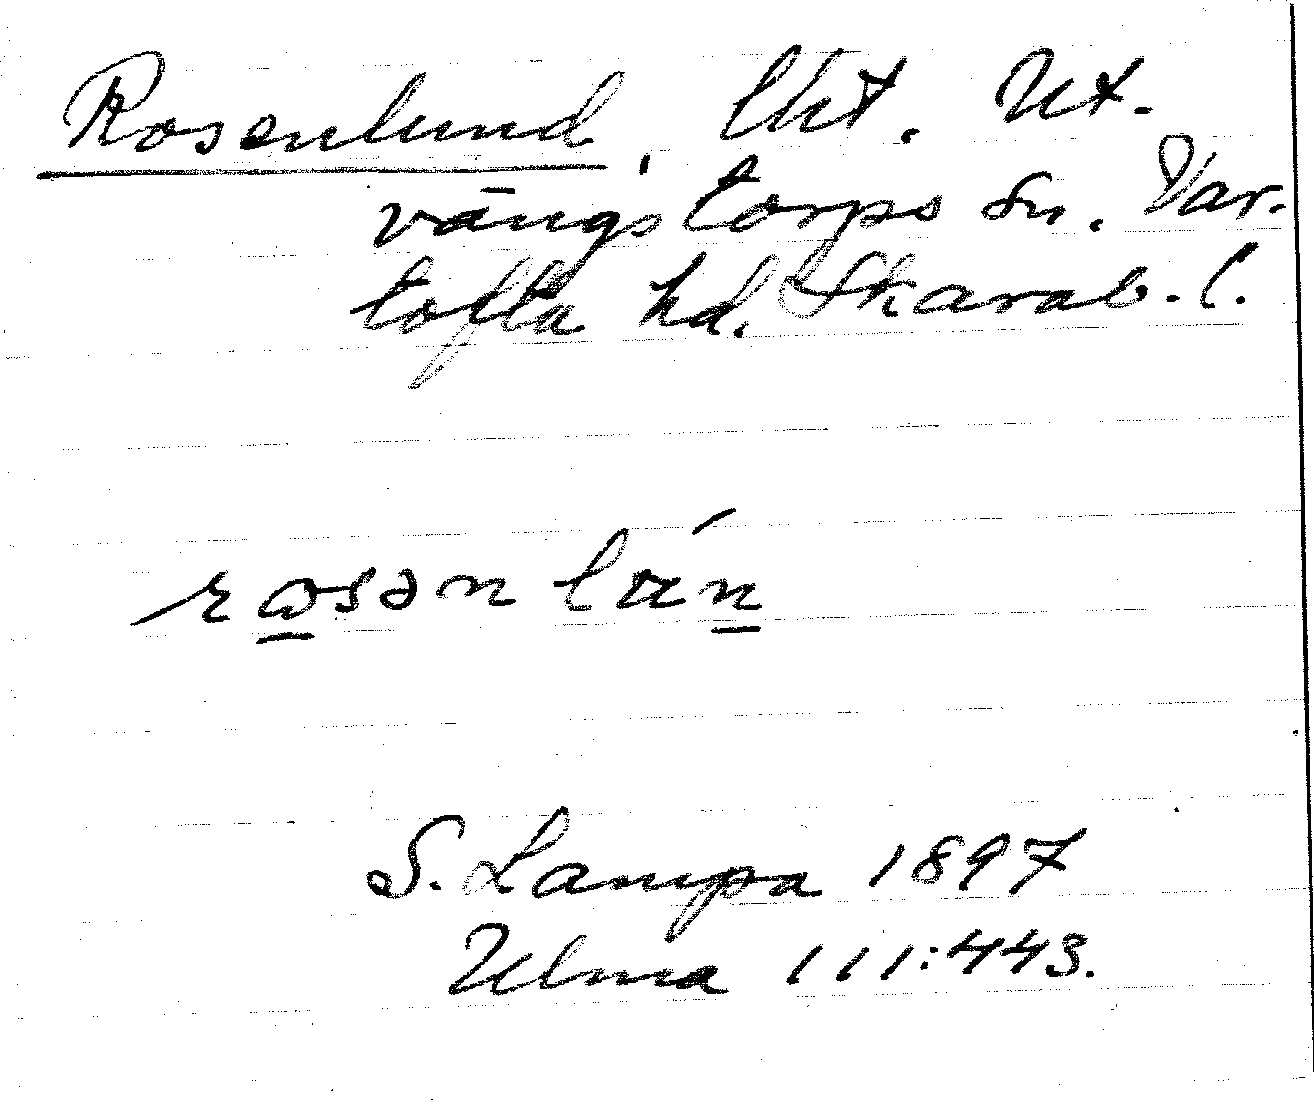 Rosenlund, lht. Ut-
vängstorps sn. Var-
tofta hd. Skarab. l.
rosən lún
S. Lampa 1897
Ulma 111:443.